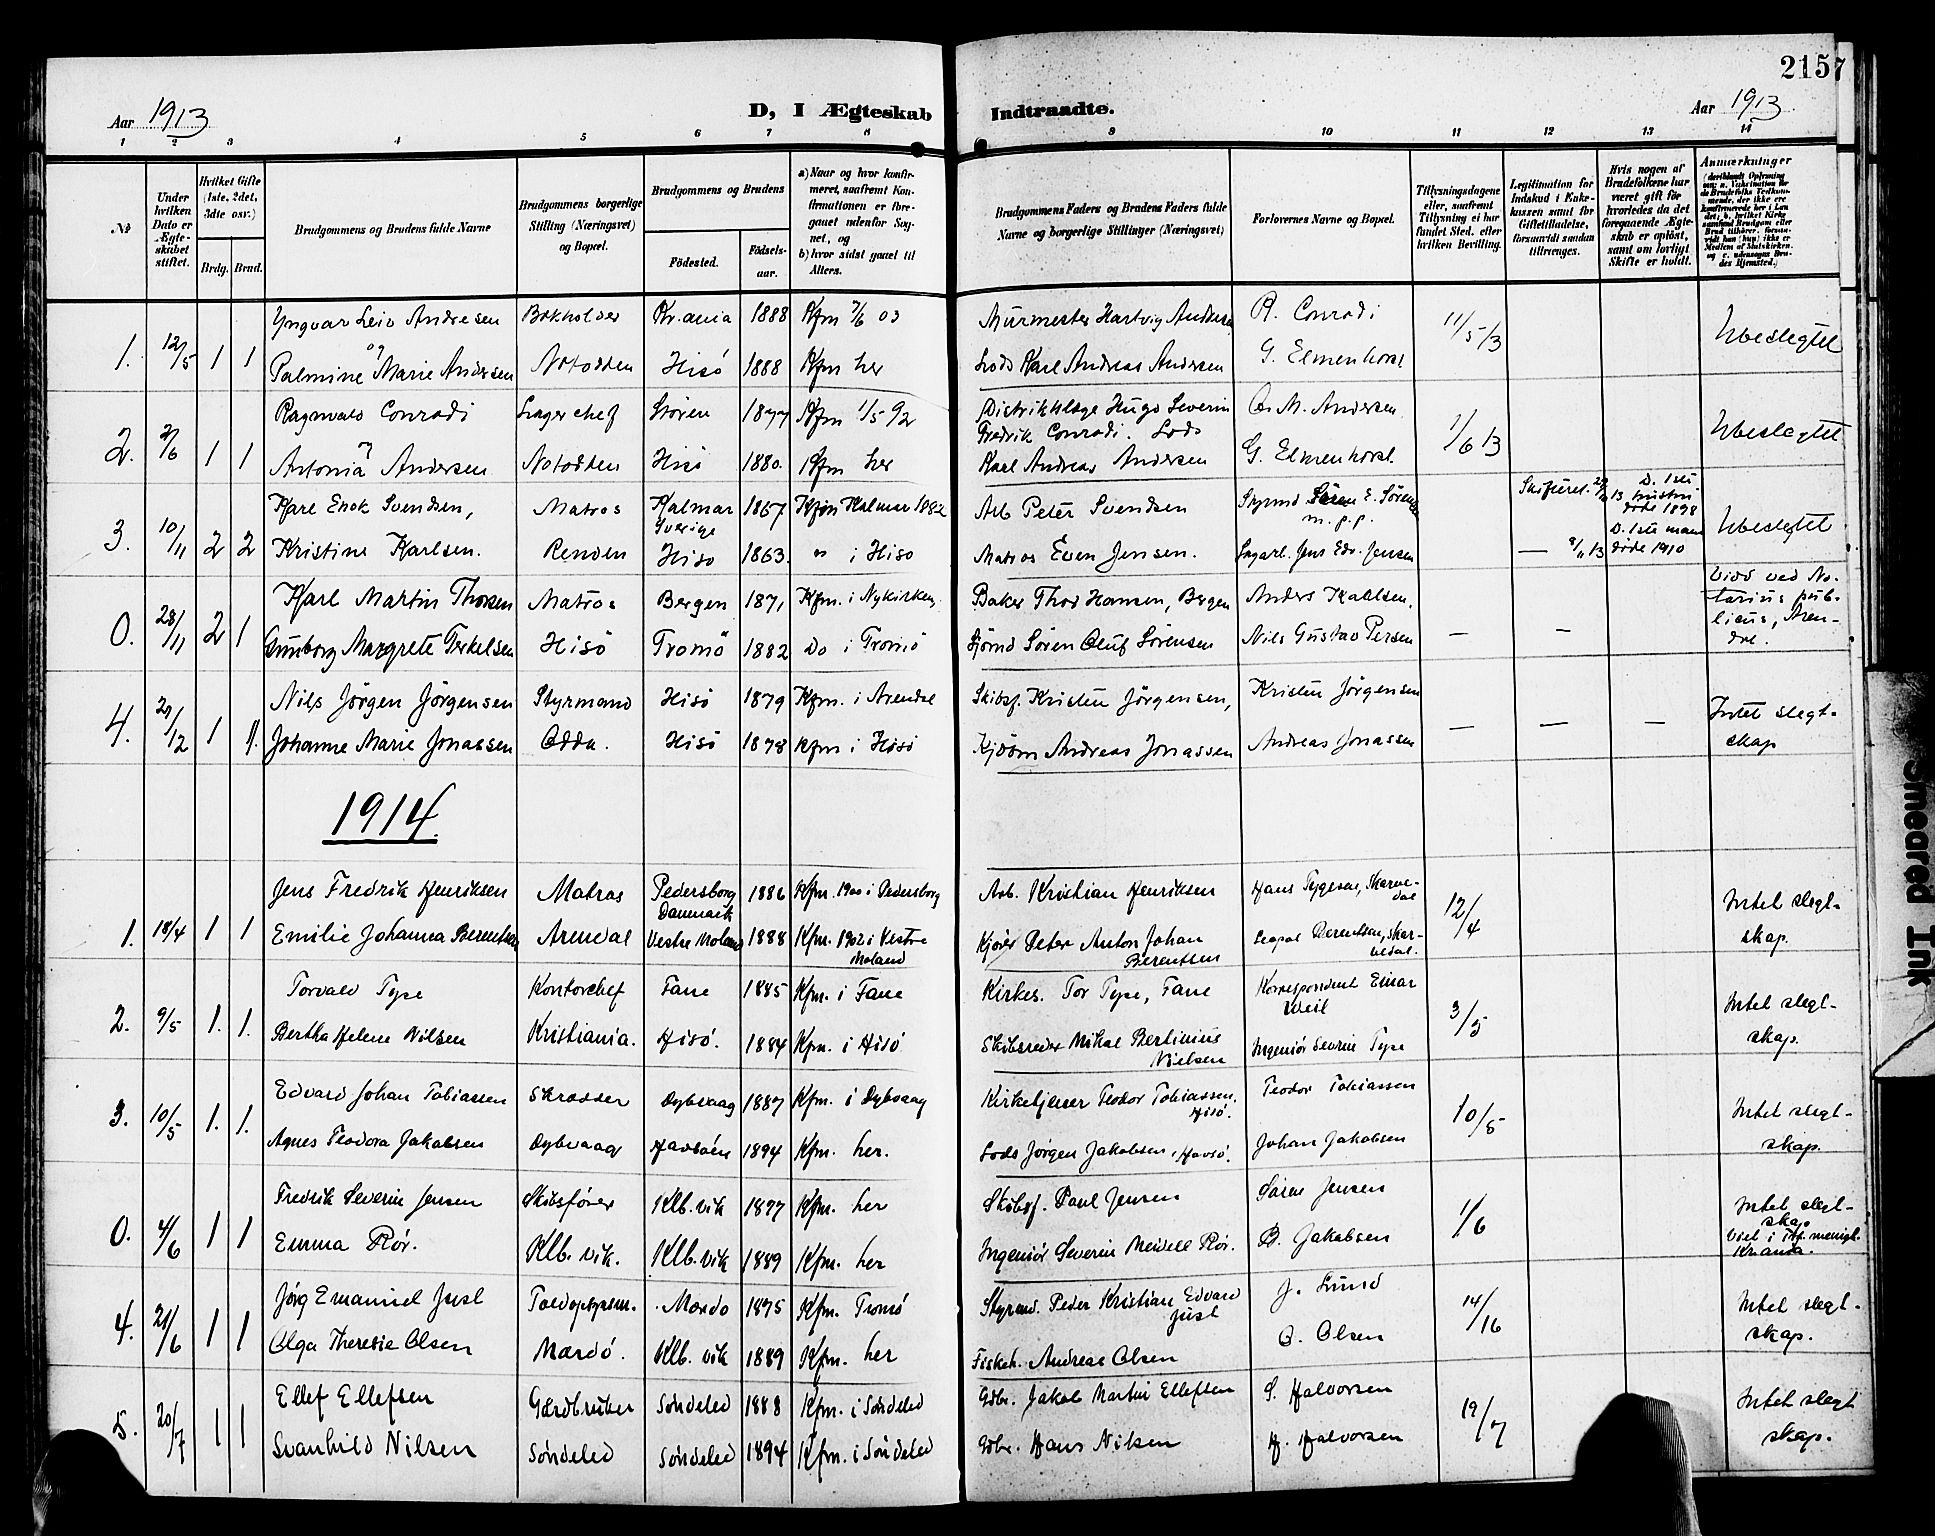 2157
Aar 1913
D, I Ægteskab Indtraadte.
Aar 1913
1 2 3 4 5 6 7 8 9 10 11 12 13 14
№
Under hvilken Dato er Ægteskabet stiftet.
Hvilket Gifte (1ste, 2det, 3dte osv.)
Brdg. Brud.
Brudgommens og Brudens fulde Navne
Brudgommens borgerlige Stilling (Næringsvei) og Bopæl.
Brudgommens og Brudens
Födested.
Födselsaar.
a) Naar og hvor konfirmeret, saafremt Konfirmationen er foregaaet udenfor Sognet, og
b) hvor sidst gaaet til Alters.
Brudgommens Faders og Brudens Faders fulde Navne og borgerlige Stillinger (Næringsvei)
Forlovernes Navne og Bopæl.
Tillysningsdagene eller, saafremt Tillysning ei har fundet Sted, efter hvilken Bevilling.
Legitimation for Indskud i Enkekassen samt for Giftetilladelse, forsaavidt saadan tiltrænges.
Hvis nogen af Brudefolkene har været gift för hvorledes da det foregaaende Ægteskab er oplöst, samt om lovligt Skifte er holdt.
Anmærkninger
1. 12/5 1 1
Yngvar Leiv Andresen Bokholder Kr.ania 1888 Kfm 7/6 03 Murmester Hartvig Andresen R. Conradi 11/5 13 Ubeslegtet
og
Palmine Marie Andersen Notodden Hisö 1888 Kfm her Lods Karl Andreas Andersen G. Elmenhorst
2. 2/6 1 1
Ragnvald Conradi Lagerchef Stören 1877 Kfm 1/5 92 Distriktslæge Hugo Severin Fredrik Conradi. M. Andersen 1/6 13 Ubeslegtet
og
Antonia Andersen Notodden Hisö 1880. Kfm her Lods Karl Andreas Andersen G. Elmenhorst.
3. 10/11 2 2
Karl Enok Svendsen, Matros Kalmar Sverige 1867 Kfm Kalmar 1882 Arb Peter Svendsen Styrmd E. Sörensen m.p.p. D. 1ste hustru döde 1898 Ubeslegtet
Kristine Karlsen. Renden Hisö 1863. do i Hisö Matros Even Jensen. Lagarb. Jens Edv. Jensen — 8/11 13 D. 1ste mand döde 1910
0. 28/11 2 1
Karl Martin Thorsen Matros Bergen 1871 Kfm. i Nykirken Baker Thor Hansen, Bergen Anders Karlsen. Viet ved Notarius publicus, Arendal.
Gunborg Margrete Terkelsen Hisö Tromö 1882 Do i Tromö Sjömd Sören Oluf Sörensen Nils Gustav Persen — —
4. 29/12 1 1.
Nils Jörgen Jörgensen Styrmand Hisö 1879 Kfm. i Arendal Skibsf. Kristen Jörgensen, Kristen Jörgensen — — — Intet slegtskap
Johanne Marie Jonassen Odda. Hisö 1878 Kfm i Hisö Andreas Jonassen Andreas Jonassen
1914.
1. 18/4 1 1
Jens Fredrik Henriksen Matros Pedersborg Danmark 1886 Kfm. 1900 i Pedersborg Arb. Kristian Henriksen Hans Tygesen, 12/4 Intet slegtskap.
Emilie Johanna Berentsen Arendal Vestre Moland 1888 Kfm. 1902 i Vestre Moland Peter Anton Johan Berentsen Berentsen,
2. 9/5 1. 1.
Torvald Type Kontorchef Fane 1885 Kfm. i Fane Kirkes. Tor Type, Fane Korrespondent Einar Weil 3/5 Intet slegtskap.
Bertha Helene Nilsen Kristiania. Hisö. 1884 Kfm. i Hisö Skibsreder Mikal Bertinius Nielsen Ingeniör Severin Type
3. 10/5 1. 1.
Edvard Johan Tobiassen Skrædder Dybvaag 1887 Kfm. i Dybvaag Kirketjener Teodor Tobiassen, Hisö. Teodor Tobiassen 10/5 Intet slegtskap.
Agnes Teodora Jakobsen Dybvaag 1894 Kfm. her. Lods Jörgen Jakobsen, Johan Jakobsen
0. 4/6 1 1
Fredrik Severin Jensen Skibsförer Klb.vik 1877 Kfm. her Skibsf. Paul Jensen Sören Jensen 1/6 Intet slegtskap Viet i menigh. Kr.anda.
Emma Rör. Klb. vik. Klb. vik 1889 Kfm. her Ingeniör Severin Meidell Rör. B. Jakobsen
4. 21/6 1 1
Jörg Emanuel Just Toldopsynsm. Mærdö 1875 Kfm. Tromö Styrmd. Peder Kristian Edvard Just J. Lund 14/16 Intet slegtskap.
Olga Therese Olsen Mærdö. Klb. vik 1889 Kfm. her Fiskeh. Andreas Olsen O. Olsen
5. 20/7 1 1
Ellef Ellefsen Gårdbruker Söndeled 1888 Kfm. i Söndeled Gdbr. Jakob Martin Ellefsen S. Halvorsen 19/7 Intet slegtskap.
Svanhild Nilsen Söndeled Söndeled 1894 Kfm. i Söndeled Gdbr. Hans Nilsen H. Halvorsen
Smeared Ink